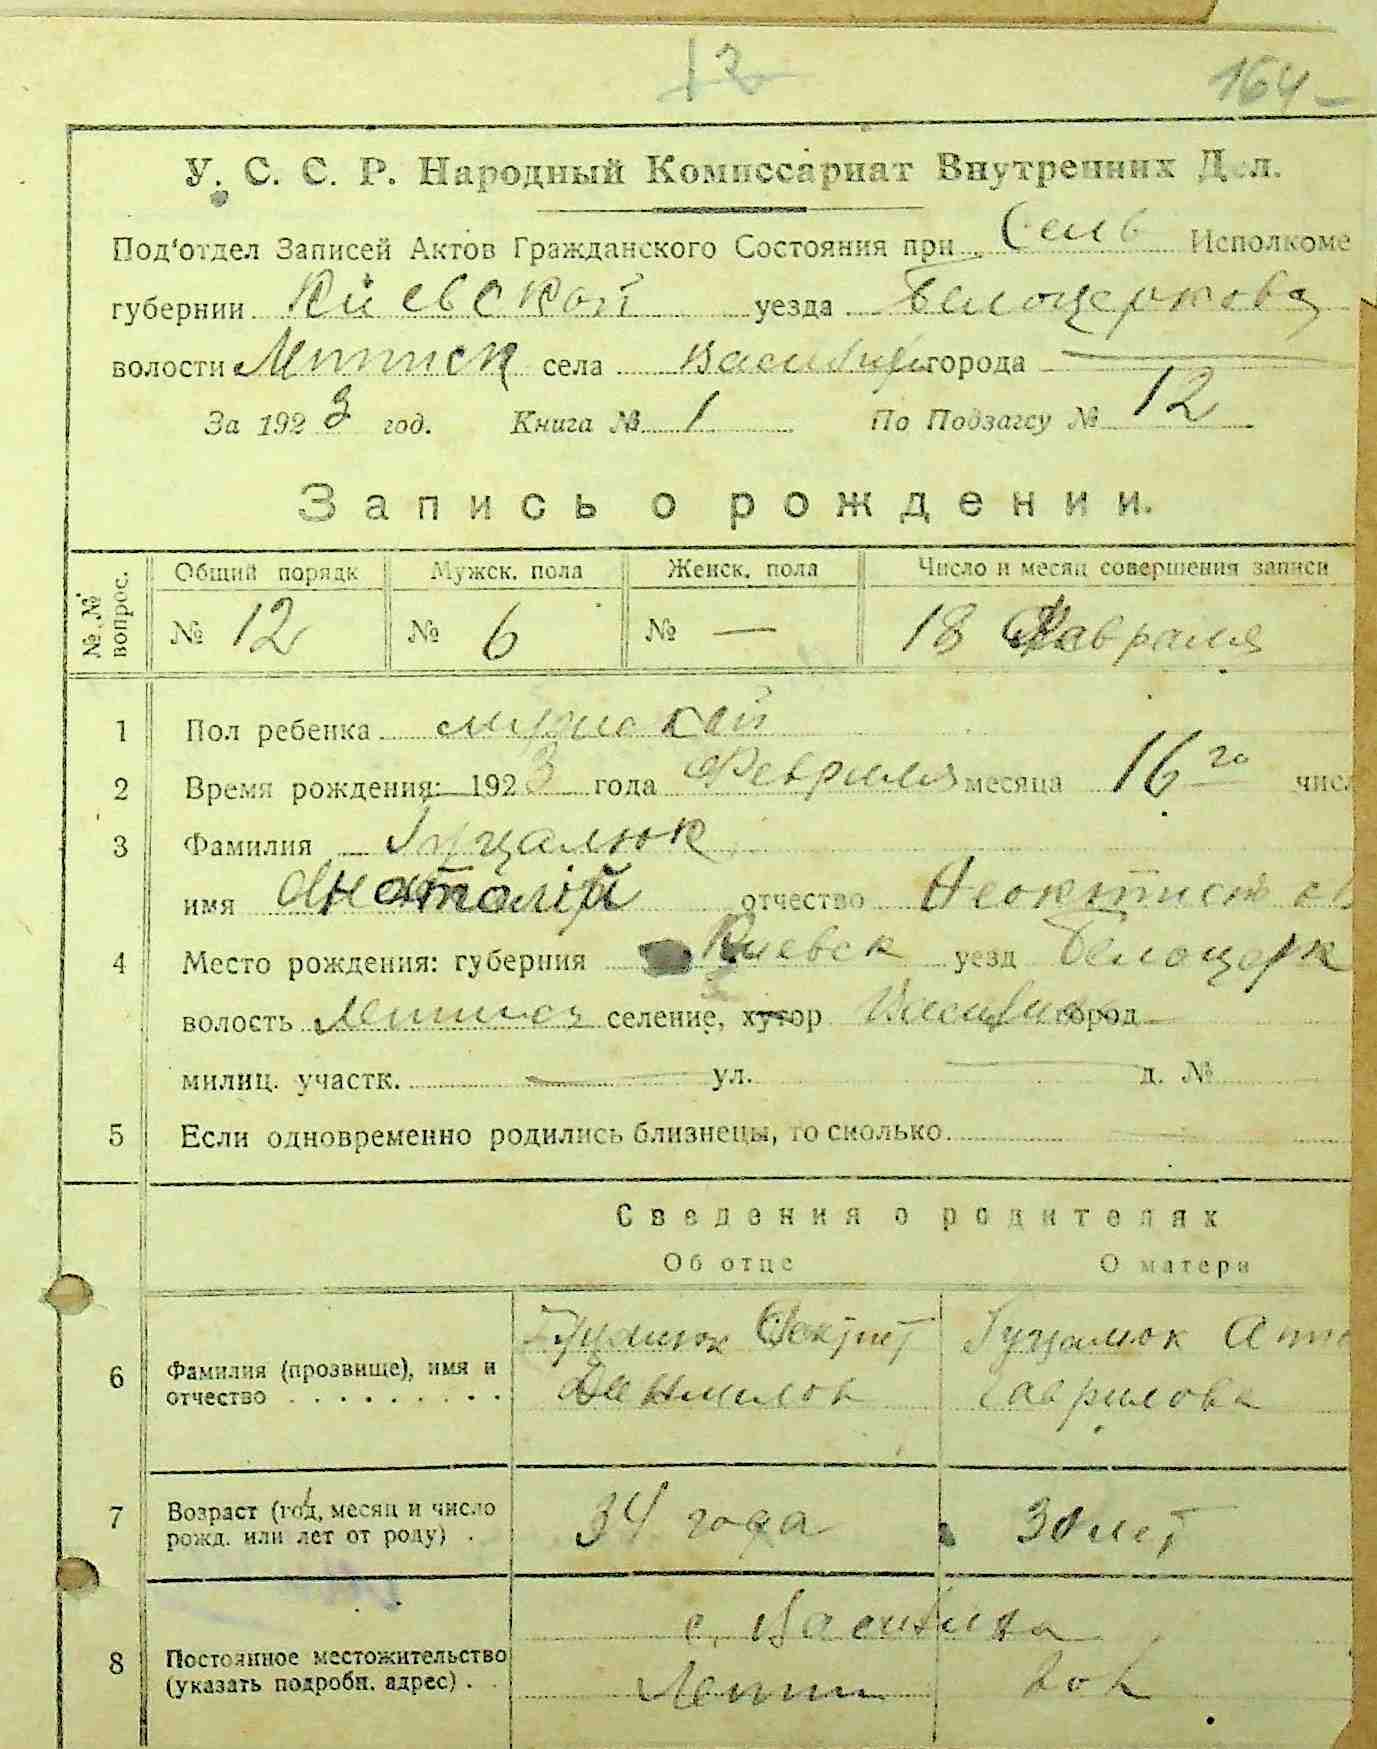 12
164
У. С. С. Р. Народный Комиссариат Внутренних Дел.
Под'отдел Записей Актов Гражданского Состояния при Сель Исполкоме
губернии Киевской уезда Белоцерковск
волости села города
За 1923 год. Книга № 1 По Подзагсу № 12
Запись о рождении.
№.№ вопрос. Общий порядк Мужск. пола Женск. пола Число и месяц совершения записи
№ 12 № 6 № — 18 Февраля
1 Пол ребенка мужской
2 Время рождения: 1923 года Февраля месяца 16го числ
3 Фамилия Гуцалюк
имя Анатолій отчество Феоктистов
4 Место рождения: губерния Киевск уезд Белоцерк
волость селение, хутор город —
милиц. участк. — ул. — д. №
5 Если одновременно родились близнецы, то сколько
Сведения о родителях
Об отце О матери
6 Фамилия (прозвище), имя и Гуцалюк Фектист Гуцалюк
отчество Данилов Гаврилова
7 Возраст (год, месяц и число 34 года 30 лет
рожд. или лет от роду)
с.
8 Постоянное местожительство
(указать подробн. адрес) вол